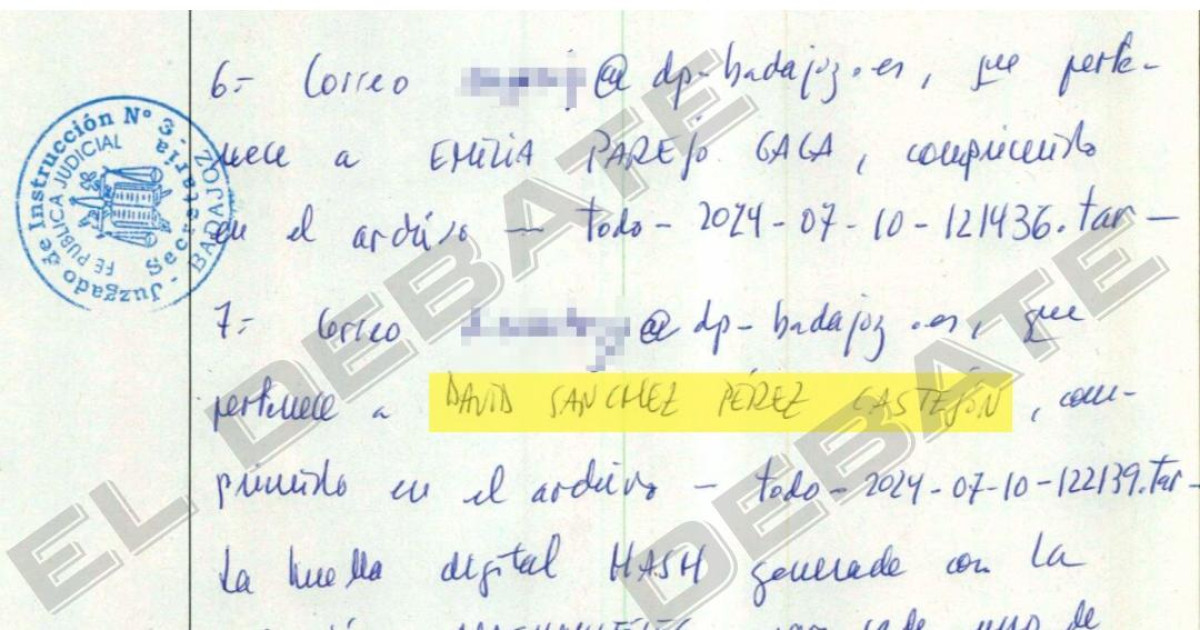 6.- Correo @dp-badajoz.es, que perte-
nece a EMILIA PAREJO GAGA, comprimido
en el archivo — todo-2024-07-10-121436.tar —
7.- Correo @dp-badajoz.es, que
pertenece a DAVID SANCHEZ PÉREZ CASTEJÓN, com-
primido en el archivo — todo-2024-07-10-122139.tar-
La huella digital HASH generada con la
para cada uno de
Juzgado de Instrucción Nº 3.- BADAJOZ
Secretaría
FE PUBLICA JUDICIAL
EL DEBATE
DEBATE